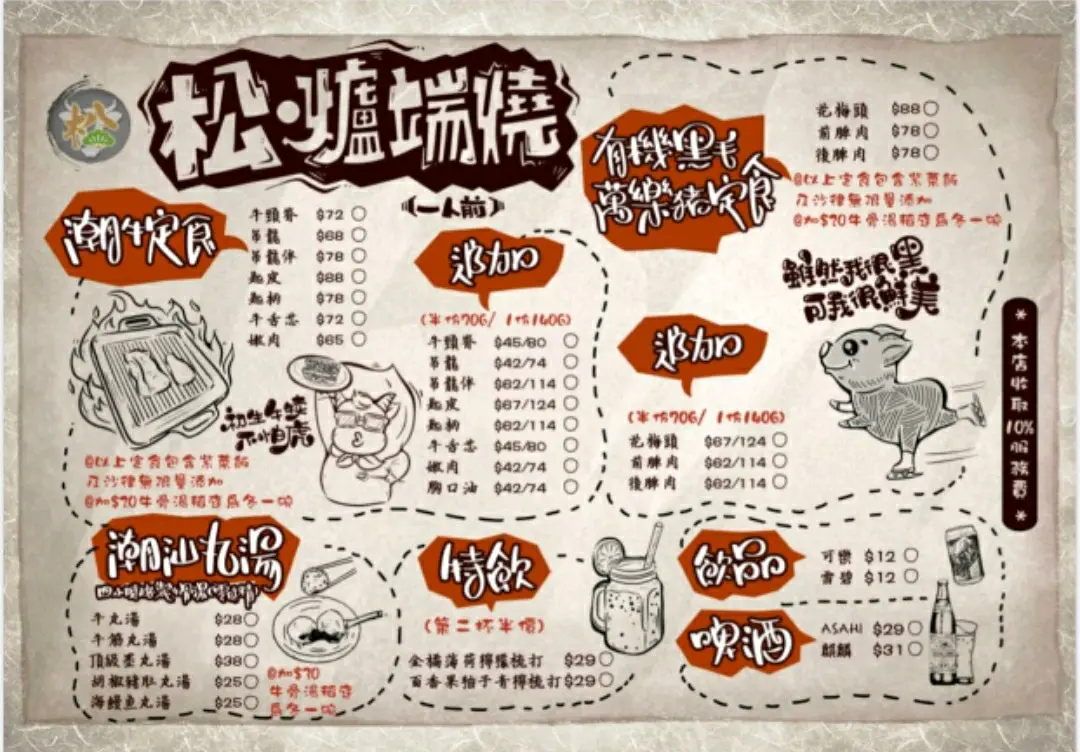 松
松·爐端燒
(一人前)
潮牛定食
牛頸脊 $72
吊龍 $68
吊龍伴 $78
匙皮 $88
匙柄 $78
牛舌芯 $72
嫩肉 $65
初生牛犢
不怕虎
@以上定食包含紫菜飯
及沙律無限量添加
@加$70牛骨湯稻庭烏冬一碗
追加
(半份70G/ 1份140G)
牛頸脊 $45/80
吊龍 $42/74
吊龍伴 $62/114
匙皮 $67/124
匙柄 $62/114
牛舌芯 $45/80
嫩肉 $42/74
胸口油 $42/74
有機黑毛
萬樂豬定食
花梅頭 $88
前脾肉 $78
後脾肉 $78
@以上定食包含紫菜飯
及沙律無限量添加
@加$70牛骨湯稻庭烏冬一碗
雖然我很黑
可我很鮮美
追加
(半份70G/ 1份140G)
花梅頭 $67/124
前脾肉 $62/114
後脾肉 $62/114
*本店收取10%服務費*
潮汕丸湯
牛丸湯 $28
牛筋丸湯 $28
頂級墨丸湯 $38
胡椒豬肚丸湯 $25
海鰻魚丸湯 $25
@加$70
牛骨湯稻庭
烏冬一碗
特飲
(第二杯半價)
金橘薄荷檸檬梳打 $29
百香果柚子青檸梳打 $29
飲品
可樂 $12
雪碧 $12
啤酒
ASAHI $29
麒麟 $31